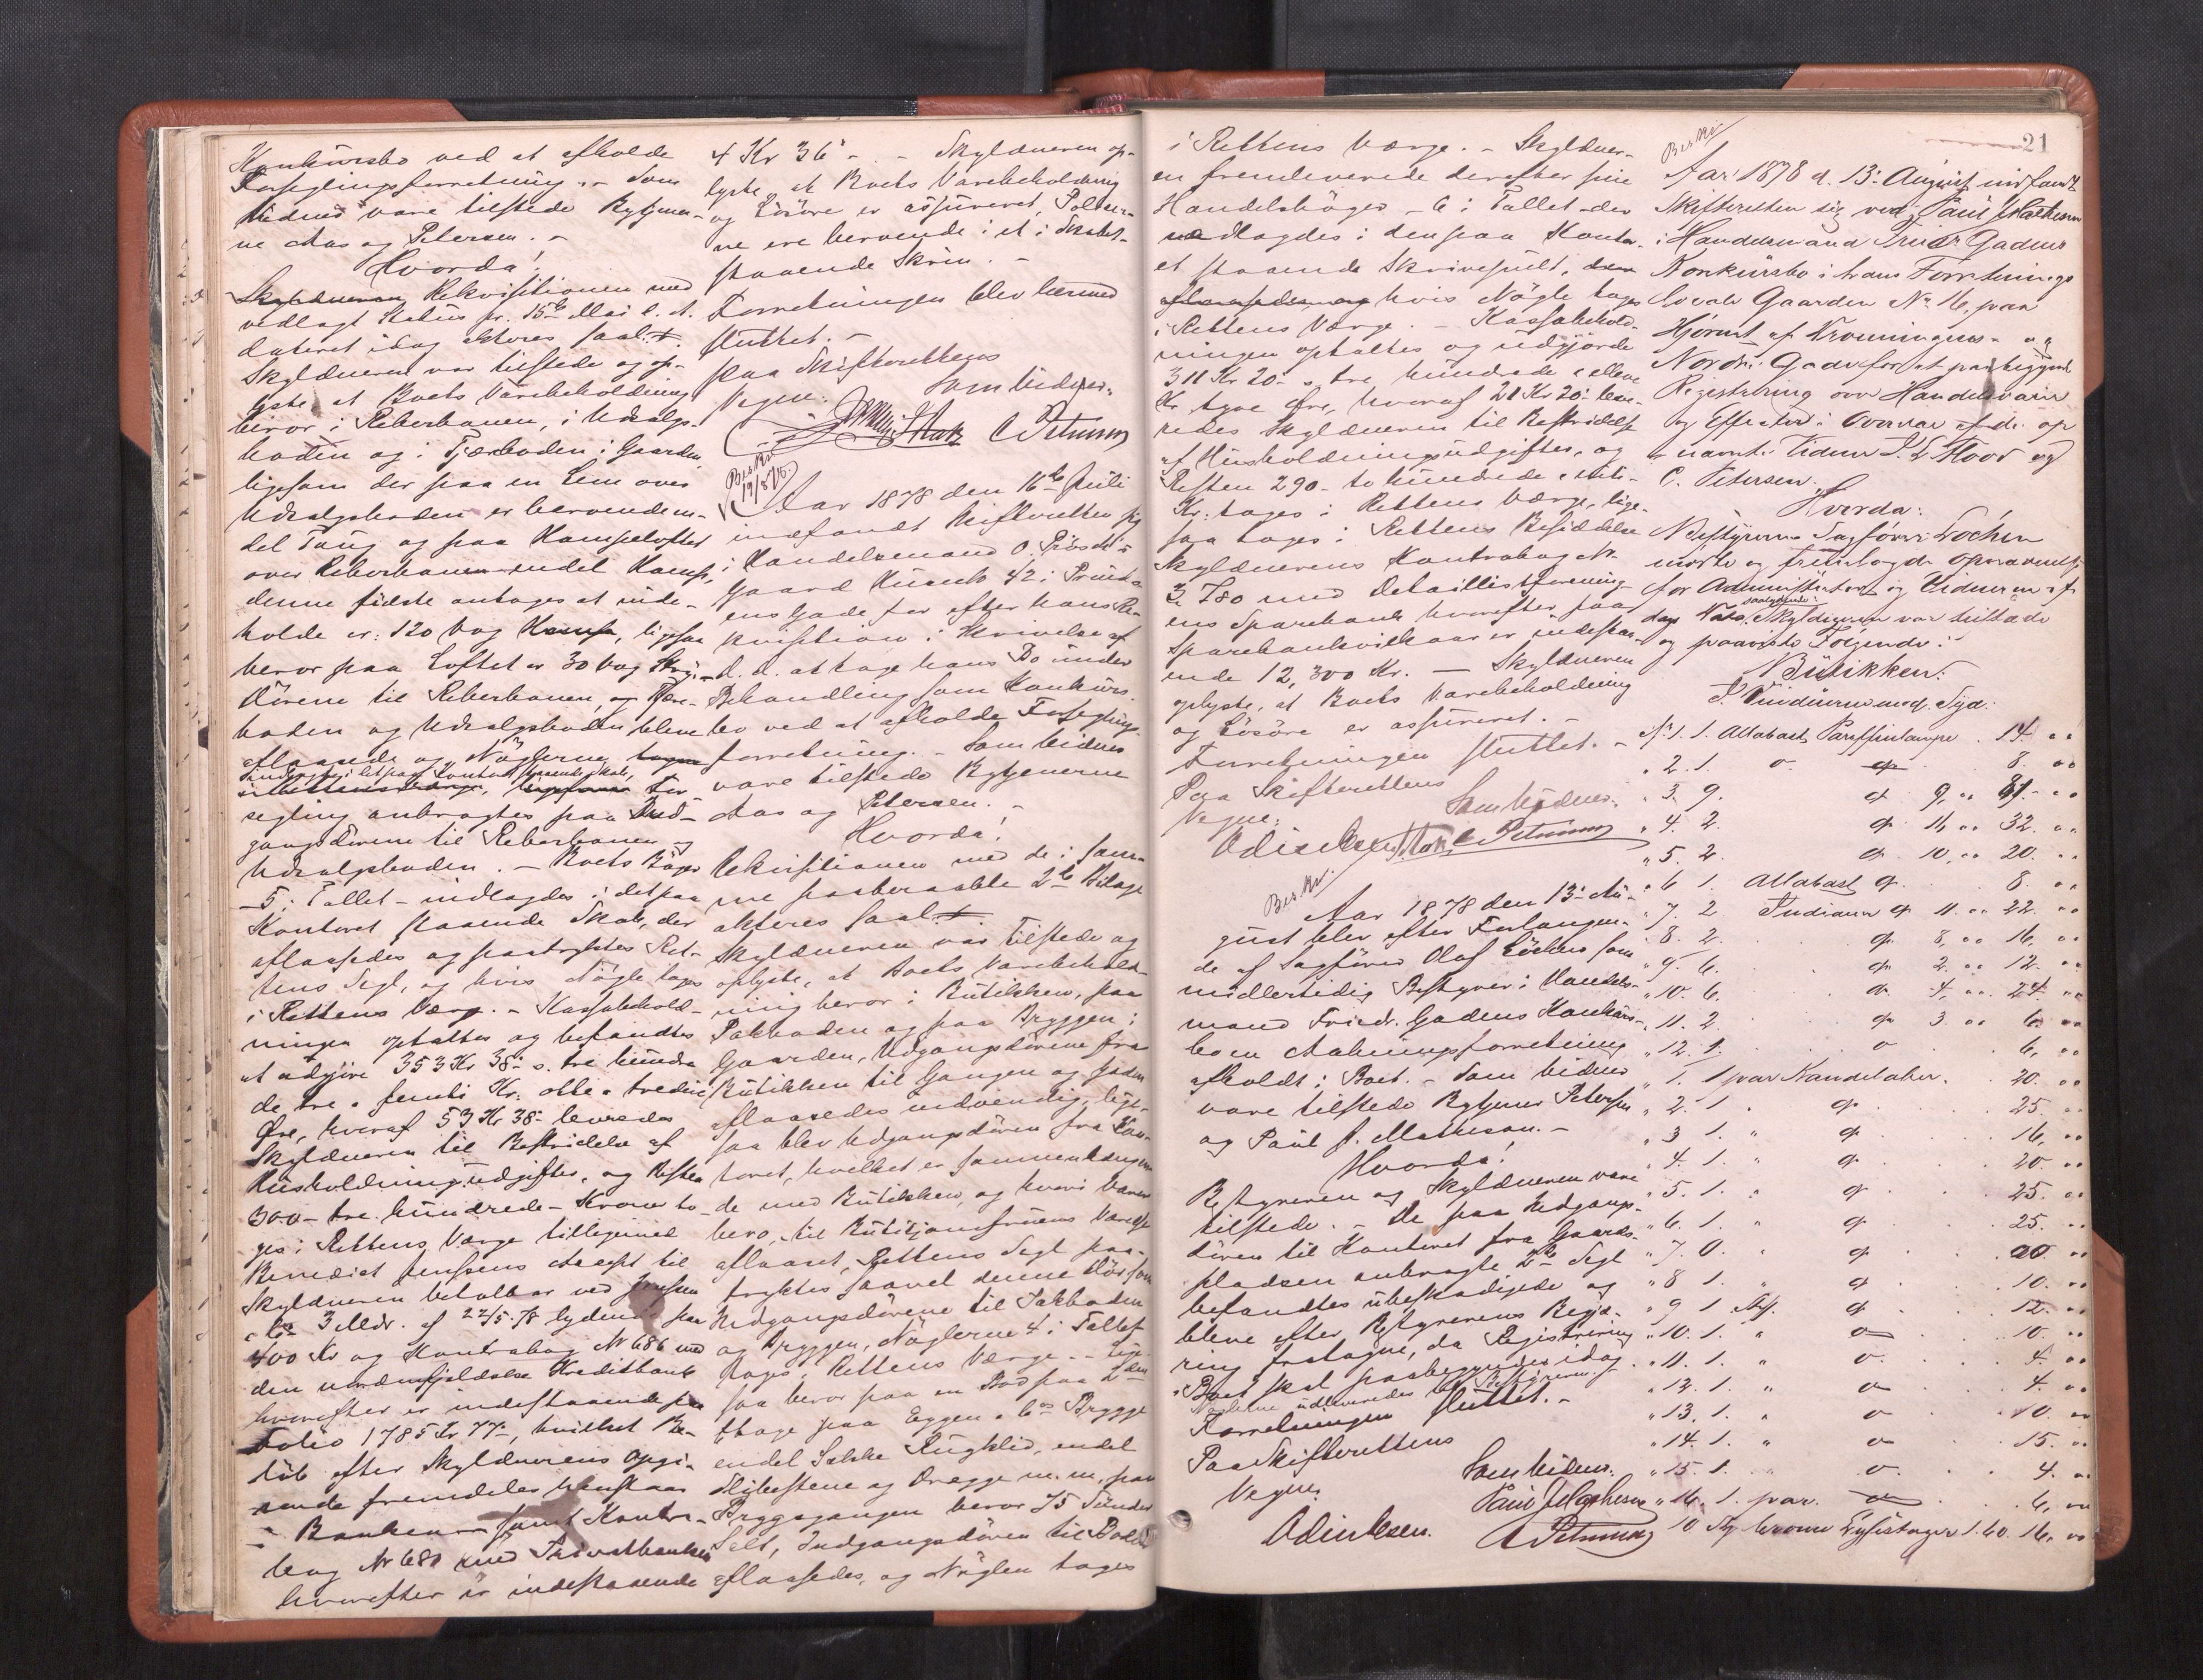 Konkursbo ved at afholde
Forseglingsforretning. – Som
Vidner vare tilstede Bytjener-
ne Aas og Petersen. –
Hvorda!
Rekvisitionen med
vedlagt Status pr. 15de Mai d. A.
dateret idag akteres saal.
Skyldneren var tilstede og op-
lyste, at Boets Varebeholdning
beror i Reberbanen, i Udsalgs-
boden og i Tjæreboden i Gaarden,
ligesom der paa en Lem over
Udsalgsboden er beroende en-
del Toug og paa Hampeloftet
over Reberbanen endel Hamp,
denne sidste antages at inde-
holde ca. 120 Vog Hamp, ligesaa
beror paa Loftet ca 30 Vog
Dørene til Reberbanen, og Tjære-
boden og Udsalgsboden bleve
aflaasede og Nøglerne
indlagdes i det paa Kontoret staaende Skab, For
segling anbragtes paa Ind-
gangsdørene til Reberbanen og
Udsalgsboden. – Boets Bøger
– 5 i Tallet – indlagdes i det paa
Kontoret staaende Skab, der
aflaasedes og paatryktes Ret-
tens Segl, og hvis Nøgle toges
i Rettens Værge. – Kassabehold-
ningen optaltes og befandtes
at udgjøre 353 Kr 38 – s. tre hundre
de tre & femti Kr. otte & tredive
Øre, hvoraf 53 Kr 38 – levredes
Skyldneren til Bestridelse af
Husholdningsudgifter, og Resten
300 – tre hundrede – Kroner to-
ges i Rettens Værge tilligemed
Benedict Jenssens Accept til
Skyldneren betalbar ved Jenssen
& Co 3 Mdr. af 22/5 78 lydende paa
400 Kr og Kontrabog No 686 med
den nordenfjeldske Kreditbank
hvorefter er indestaaende paa
Folio 1785 Kr 77 –, hvilket Be-
løb efter Skyldnerens Opgi-
vende fremdeles henstaar
i Banken – samt Kontra-
bog No 680 med Privatbanken
hvorefter er indestaaende
4 Kr 36 – . – Skyldneren op-
lyste, at Boets Varebeholdning
og Løsøre er assureret, Policer-
ne ere beroende i et i Skabet
staaende Skrin. –
Forretningen blev hermed
sluttet. –
Paa Skifterettens
Vegne: Som Vidner:
C Petersen
Beskr
19/8 78.
Aar 1878 den 16de Juli
indfandt Skifteretten sig
i Handelsmand O.
Gaard Husnr 42 i Prinds-
ens Gade for efter hans Re-
kvisition i Skrivelse af
d. D. at tage hans Bo under
Behandling som Konkurs-
bo ved at afholde Forseglings-
forretning. – Som Vidner
vare tilstede Bytjenerne
Aas og Petersen. –
Hvorda!
Rekvisitionen med de i sam-
me paaberaabte 2de Bilage
akteres saal.
Skyldneren var tilstede og
oplyste, at Boets Varebehold-
ning beror i Butikken, paa
Pakboden og paa Bryggen i
Gaarden, Udgangsdørene fra
Butikken til Gangen og Gaden
aflaasedes indvendig, lige-
saa blev Udgangsdøren fra Kon-
toret, hvilket er sammenhængen
de med Butikken, og hvori Varer
bero, til Butikjomfruens Værelse
aflaaset, Rettens Segl paa-
tryktes saavel denne Dør som
Udgangsdørene til Pakboden
og Bryggen, Nøglerne 4 i Tallet
toges i Rettens Værge. – Lige-
saa beror paa en Bod paa 2den
Etage paa Eggen & Co's Brygge
endel Sække Rugklid, endel
Slibestene og Dregge m. m. paa
Bryggegangen beror 75 Tønder
Salt, Indgangsdøren til Boden
aflaasedes, og Nøglen toges
i Rettens Værge. – Skyldner-
en fremleverede derefter sine
Handelsbøger – 6 i Tallet – der
nedlagdes i den paa Kontor-
et staaende Skrivepult,
hvis Nøgle toges
i Rettens Værge. – Kassabehold-
ningen optaltes og udgjorde
311 Kr 20 – s. tre hundrede & elleve
Kr tyve Øre, hvoraf 21 Kr 20 – leve-
redes Skyldneren til Bestridelse
af Husholdningsudgifter, og
Resten 290 – to hundrede & nitti –
Kr. toges i Rettens Værge, lige-
saa toges i Rettens Besiddelse
Skyldnerens Kontrabog No
3,780 med Detaillistforening-
ens Sparebank hvorefter paa
Sparebankvilkaar er indestaa-
ende 12,300 Kr. – Skyldneren
oplyste, at Boets Varebeholdning
og Løsøre er assureret. –
Forretningen sluttet. –
Paa Skifterettens
Vegne: Som Vidner:
C Petersen
Beskr.
Aar 1878 den 13de Au-
gust blev efter Forlangen-
de af Sagfører Olaf Løchen som
midlertidig Bestyrer i Handels-
mand Friedr. Gadens Konkurs-
bo en Aabningsforretning
afholdt i Boet. – Som Vidner
vare tilstede Bytjener Petersen
og Paul J. Mathesen. –
Hvorda!
Bestyreren og Skyldneren vare
tilstede. – De paa Udgangs-
døren til Kontoret fra Gaards-
pladsen anbragte 2de Segl
befandtes ubeskadigede og
bleve efter Bestyrerens Begjæ-
ring fratagne, da Registrering
i Boet skal paabegyndes idag.
Nøglerne udleveredes til Bestyreren.
Forretningen sluttet. –
Paa Skifterettens
Vegne: Som Vidner:
Paul J Mathesen
C Petersen
21
Beskr
Aar 1878 d. 13 August indfandt
Skifteretten sig ved Paul J Mathesen
i Handelsmand Friedr Gadens
Konkursbo i hans Forretnings
Lovale Gaarden No 16, paa
Hjørnet af Dronningens- og
Nordre Gade for at paabegynde
Registrering over Handelsvarer
og Effecter: Overvar af de op-
nævnte Vidner og
C. Petersen.
Hvorda:
Bestyreren Sagfører Løchen
mødte og fremlagde Opnævnelse
for Administrator og Vidner af
dags Dato saalydende: Skyldneren var tilstede
og paaviste Følgende:
Butikken:
I Vinduerne mod Syd.
No 1. 1. Alabast Paraffinlampe . 14. "
" 2. 1. do do 8. "
" 3. 9. do 9, " 81. "
" 4. 2. do 16, " 32. "
" 5. 2. do 10, " 20. "
" 6 1. Alabast do 8. "
" 7. 2 Indianer do 11. " 22. "
" 8. 2. do 8, " 16, "
" 9. 6. do 2. " 12. "
" 10. 6. do 4, " 24. "
" 11. 2. do 3. " 6. "
" 12. 1. do 6, "
" 1. 1 par Kandelaber. 20. "
" 2. 1 " do 25. "
" 3 1. " do 16, "
" 4. 1. " do 20. "
" 5. 1. " do 25. "
" 6. 1. " do 25. "
" 7. 0. " do 20 "
" 8 1. " do 10. "
" 9 1 Stk. do 12. "
" 10. 1. " do 10. "
" 11. 1. " do 4. "
" 12. 1. " do 4. "
" 13. 1. " do 10. "
" 14. 1. " do 15. "
" 15. 1. " do 4. "
" 16. 1. par. do 6, "
10 Stk Lysestager 1.60 16. "